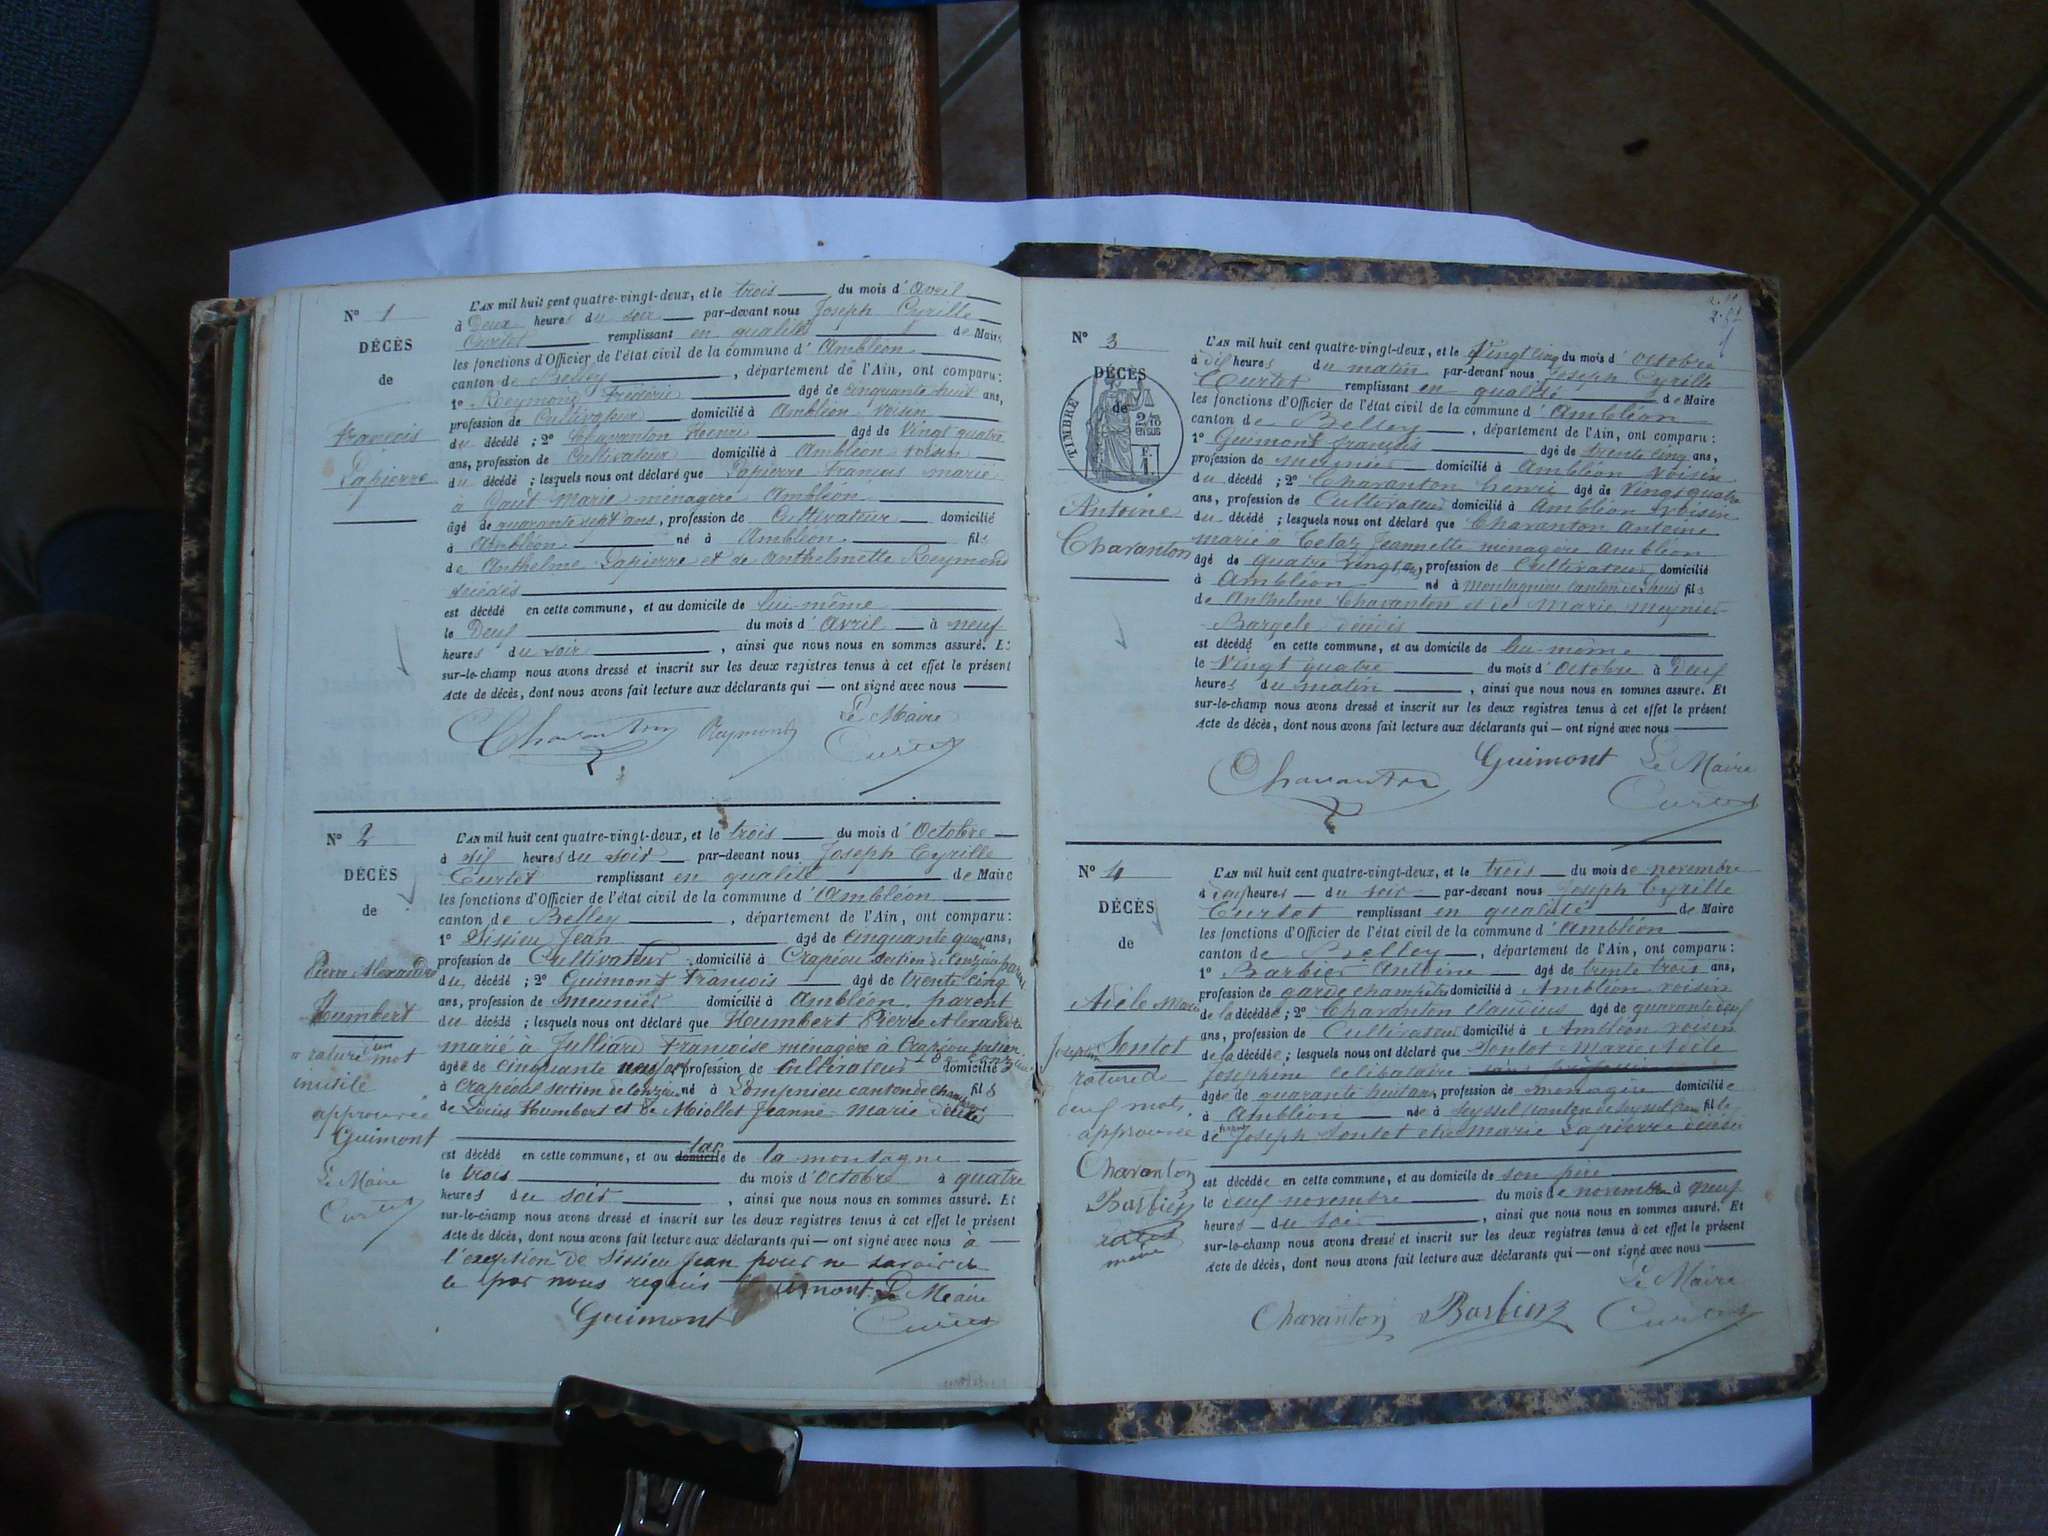 N° 1
DÉCÈS
de
François
Lapierre
L'AN mil huit cent quatre-vingt-deux, et le trois du mois d'Avril
à Deux heures du soir par-devant nous Joseph Cyrille
Curtet remplissant en qualité de Maire
les fonctions d'Officier de l'état civil de la commune d'Ambléon
canton de Belley, département de l'Ain, ont comparu:
1° Reymond Fréderic âgé de cinquante huit ans,
profession de Cultivateur domicilié à Ambléon voisin
du décédé; 2° Chavanton Henri âgé de Vingt quatre
ans, profession de Cultivateur domicilié à Ambléon voisin
du décédé; lesquels nous ont déclaré que Lapierre François marié
à Marie ménagère Ambléon
âgé de quarante sept ans, profession de Cultivateur domicilié
à Ambléon né à Ambléon fils
de Anthelme Lapierre et de Anthelmette Reymond
décédés
est décédé en cette commune, et au domicile de lui-même
le Deux du mois d'Avril à neuf
heures du soir, ainsi que nous nous en sommes assuré. Et
sur-le-champ nous avons dressé et inscrit sur les deux registres tenus à cet effet le présent
Acte de décès, dont nous avons fait lecture aux déclarants qui — ont signé avec nous
Chavanton Reymond Le Maire
Curtet
N° 2
DÉCÈS
de
Pierre Alexandre
Humbert
raturé un mot
inutile
approuvée
Guimont
Le Maire
Curtet
L'AN mil huit cent quatre-vingt-deux, et le trois du mois d'Octobre
à six heures du soir par-devant nous Joseph Cyrille
Curtet remplissant en qualité de Maire
les fonctions d'Officier de l'état civil de la commune d'Ambléon
canton de Belley, département de l'Ain, ont comparu:
1° Sissieu Jean âgé de cinquante quatre ans,
profession de Cultivateur domicilié à Crapéou section de Conzieu parent
du décédé; 2° Guimont François âgé de trente cinq
ans, profession de meunier domicilié à Ambléon parent
du décédé; lesquels nous ont déclaré que Humbert Pierre Alexandre
marié à Julliard Françoise ménagère à Crapéou section de Conzieu
âgé de cinquante neuf ans profession de Cultivateur domicilié
à Crapéou section de Conzieu né à Lompnieu canton de Champagne fils
de Louis Humbert et de Miollet Jeanne Marie décédés
est décédé en cette commune, et au domicile lac de la montagne
le trois du mois d'Octobre à quatre
heures du soir, ainsi que nous nous en sommes assuré. Et
sur-le-champ nous avons dressé et inscrit sur les deux registres tenus à cet effet le présent
Acte de décès, dont nous avons fait lecture aux déclarants qui — ont signé avec nous à
l'exeption de Sissieu Jean pour ne savoir de
ce par nous requis Guimont Le Maire
Guimont Curtet
N° 3
DÉCÈS
de
TIMBRE
2/10
EN SUS
F.
1.
Antoine
Chavanton
L'AN mil huit cent quatre-vingt-deux, et le Vingt cinq du mois d'Octobre
à dix heures du matin par-devant nous Joseph Cyrille
Curtet remplissant en qualité de Maire
les fonctions d'Officier de l'état civil de la commune d'Ambléon
canton de Belley, département de l'Ain, ont comparu:
1° Guimont françois âgé de trente cinq ans,
profession de meunier domicilié à Ambléon Voisin
du décédé; 2° Chavanton henri âgé de Vingt quatre
ans, profession de Cultivateur domicilié à Ambléon voisin
du décédé; lesquels nous ont déclaré que Chavanton Antoine
marié à Jeannette ménagère Ambléon
âgé de quatre Vingt ans, profession de Cultivateur domicilié
à Ambléon né à Montagnieu canton de Lhuis fils
de Anthelme Chavanton et de Marie Meynier
décédés
est décédé en cette commune, et au domicile de lui-même
le Vingt quatre du mois d'Octobre à Deux
heures du matin, ainsi que nous nous en sommes assuré. Et
sur-le-champ nous avons dressé et inscrit sur les deux registres tenus à cet effet le présent
Acte de décès, dont nous avons fait lecture aux déclarants qui — ont signé avec nous
Chavanton Guimont Le Maire
Curtet
N° 4
DÉCÈS
de
Adèle Marie
Joséphine Sontot
raturé
deux mots
approuvée
Chavanton
Barbier
Curtet
maire
L'AN mil huit cent quatre-vingt-deux, et le trois du mois de novembre
à heures du soir par-devant nous Joseph Cyrille
Curtet remplissant en qualité de Maire
les fonctions d'Officier de l'état civil de la commune d'Ambléon
canton de Belley, département de l'Ain, ont comparu:
1° Barbier Antoine âgé de trente trois ans,
profession de garde champêtre domicilié à Ambléon voisin
de la décédée; 2° Chavanton Claudius âgé de quarante deux
ans, profession de Cultivateur domicilié à Ambléon voisin
de la décédée; lesquels nous ont déclaré que Sontot Marie Adèle
Joséphine célibataire
âgée de quarante huit ans, profession de ménagère domiciliée
à Ambléon née à Seyssel canton de Seyssel fille
de Joseph Sontot et de Marie Lapierre
est décédée en cette commune, et au domicile de son père
le deux novembre du mois de novembre à neuf
heures du soir, ainsi que nous nous en sommes assuré. Et
sur-le-champ nous avons dressé et inscrit sur les deux registres tenus à cet effet le présent
Acte de décès, dont nous avons fait lecture aux déclarants qui — ont signé avec nous
Le Maire
Chavanton Barbier Curtet